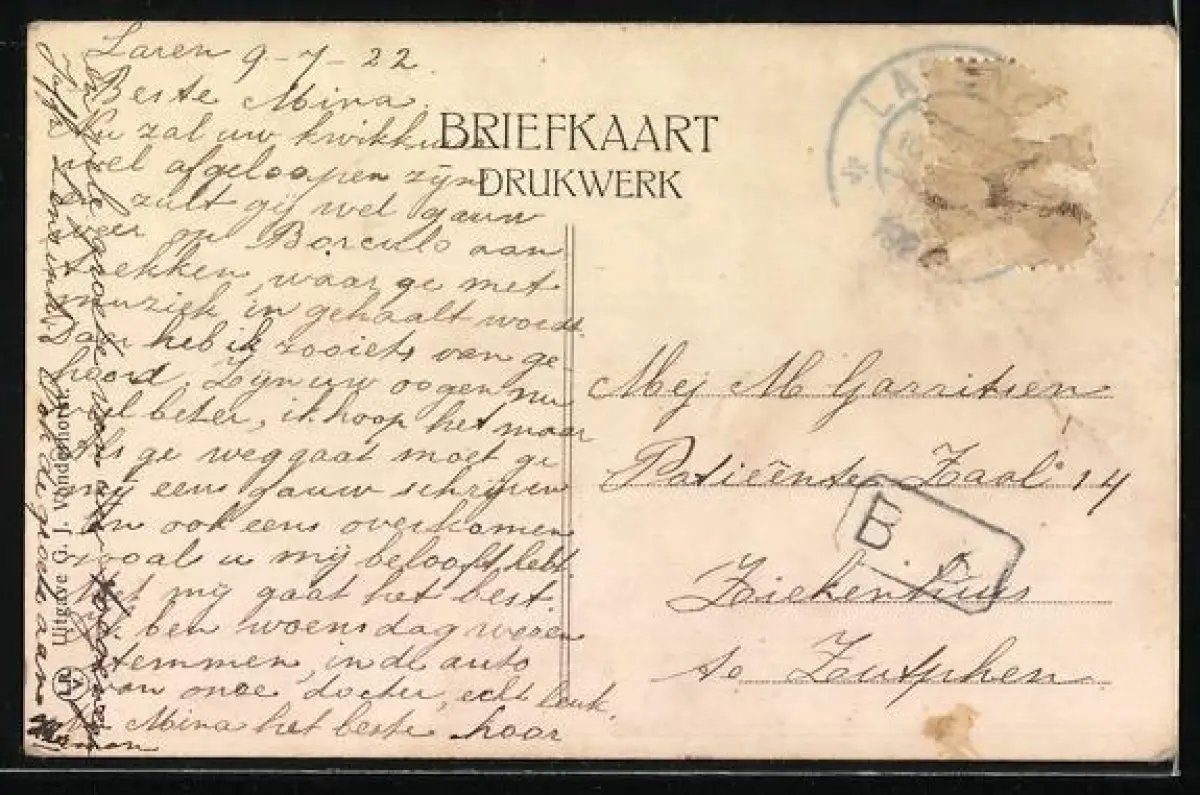 Laren 9-7-22.
Beste Mina.
Nu zal uw
wel afgeloopen zijn
en zult gij wel gauw
weer op Borculo aan
trekken, waar ge met
muziek in gehaalt wordt.
Daar heb ik zooiets van ge-
hoord, Zijn uw oogen nu
wel beter, ik hoop het maar
Als ge weggaat moet ge
mij eens gauw schrijven
en ook eens overkomen
zooal u mij belooft hebt.
Met mij gaat het best
Ik ben woensdag wezen
stemmen, in de auto
van onze docter, echt leuk.
Nu Mina het beste hoor
BRIEFKAART
DRUKWERK
LA
Mej M Garritsen
Patiënte Zaal 14
Ziekenhuis
te Zutphen
B.
Uitgave G. J. Vonderhorst.
groete van
ook de groete aan